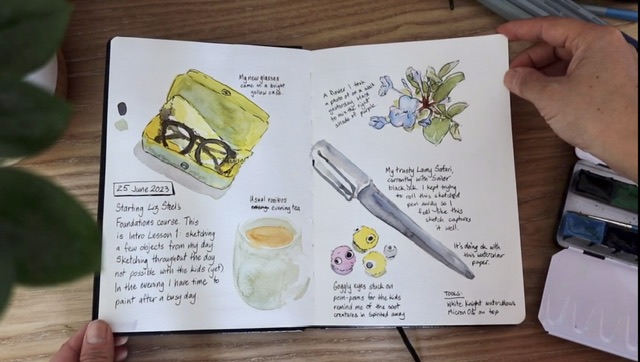 My new glasses
come in a bright
yellow case.
25 June 2023
Starting Liz Steel's
Foundations course. This
is Intro Lesson 1: sketching
a few objects from my day
Sketching throughout the day
not possible with the kids (yet)
In the evening I have time to
paint after a busy day
Usual rooibos
evening tea
A flower I took
a photo of on a walk
yesterday. Hard
to mix the right
shade of purple.
My trusty Lamy Safari,
currently with Sailor
black ink. I kept trying
to roll this sketched
pen away so I
feel like this
sketch captures
it well.
It's doing ok with
this watercolour
paper.
Googly eyes stuck on
pom-poms for the kids
remind me of the soot
creatures in Spirited away
TOOLS:
White Knight watercolours
Micron 05 on top